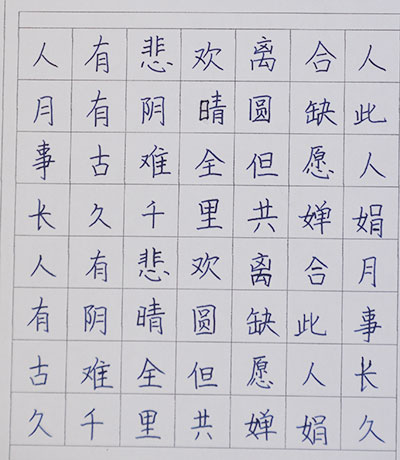 人有悲欢离合人
月有阴晴圆缺此
事古难全但愿人
长久千里共婵娟
人有悲欢离合月
有阴晴圆缺此事
古难全但愿人长
久千里共婵娟久